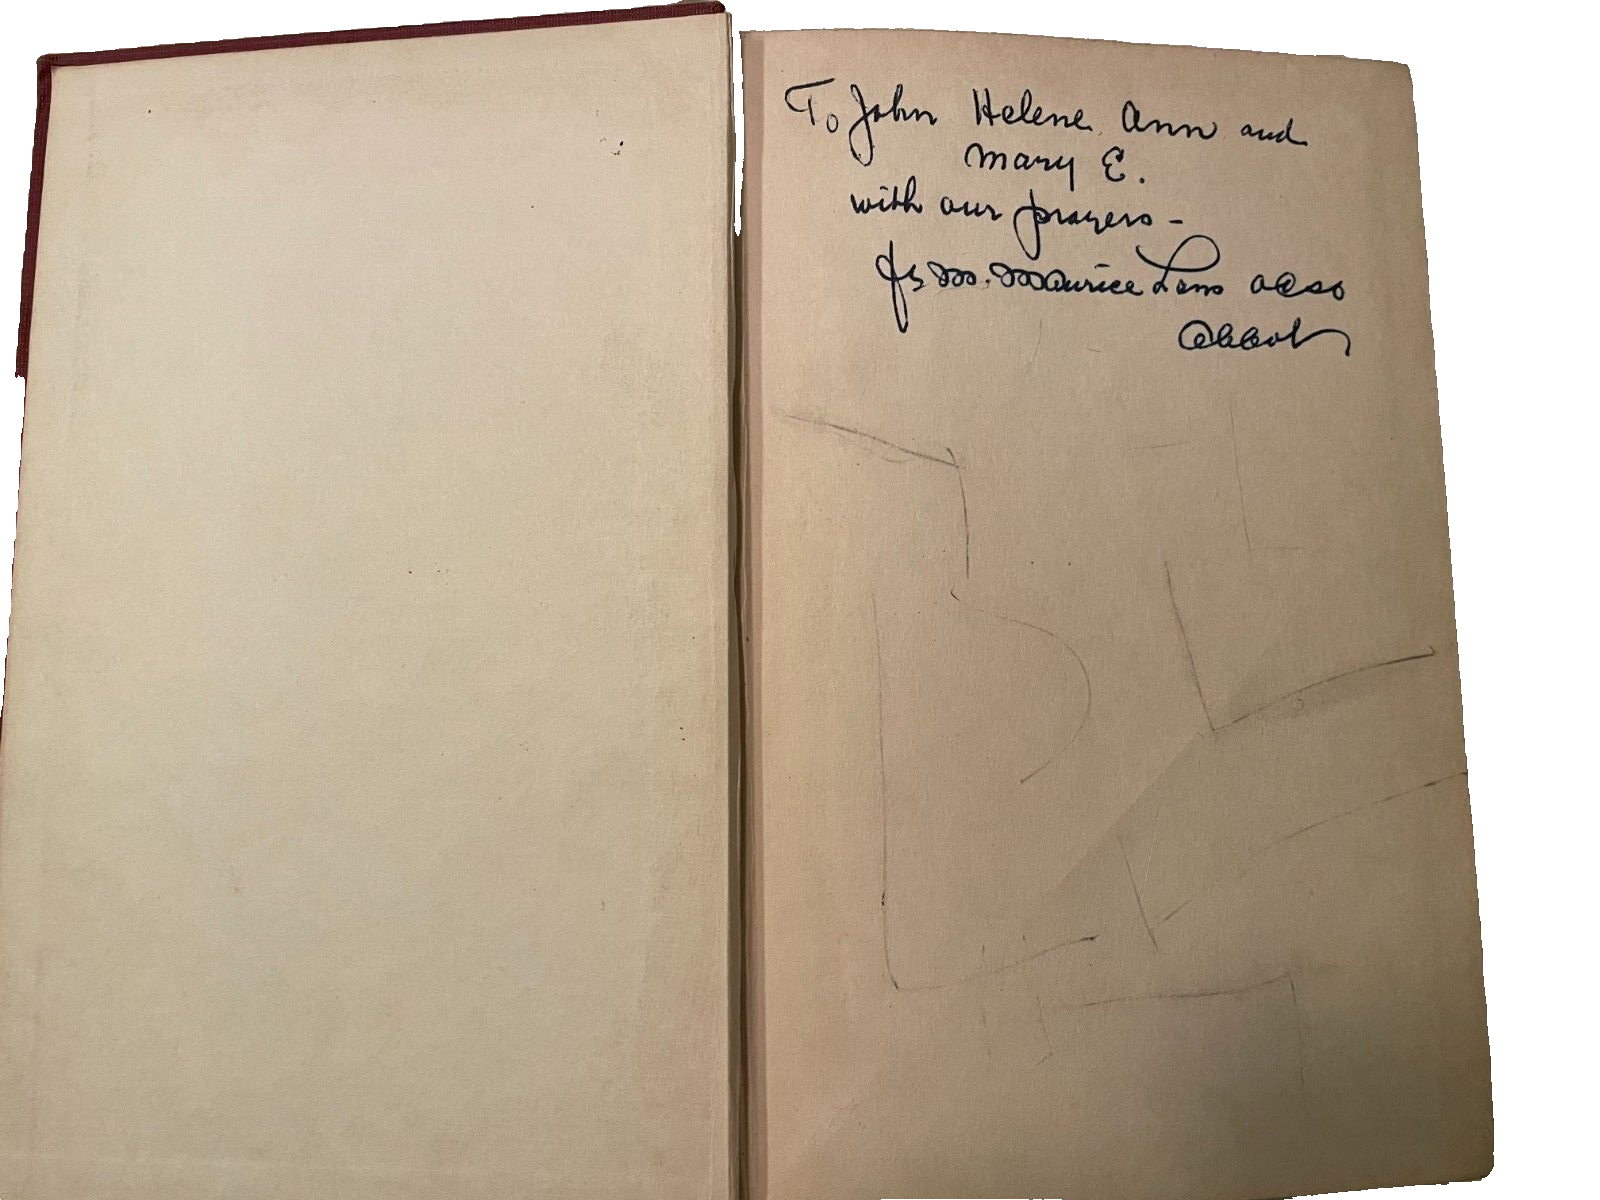 To John Helene, Ann and
Mary E.
with our prayers -
fr M. Maurice Lans ocso
Abbot